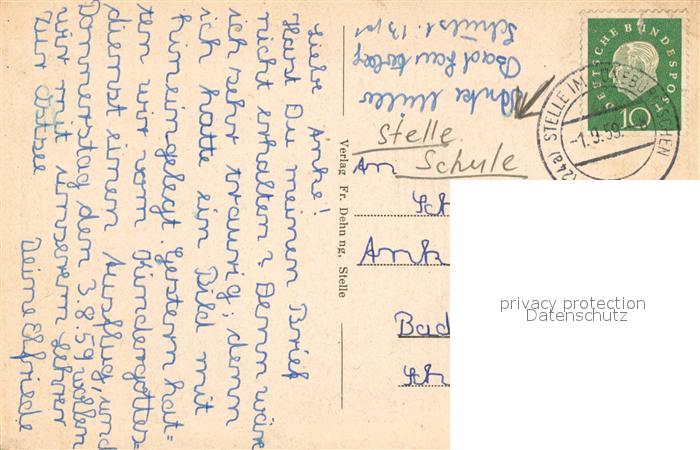 Liebe Anke!
Hast Du meinen Brief
nicht erhalten? Denn wäre
ich sehr traurig; denn
ich hatte ein Bild mit
hineingelegt. Gestern hat=
ten wir vom Kindergottes=
dienst einen Ausflug, und
Donnerstag den 3.8.59 wollen
wir mit unserem Lehrer
zur Ostsee
Deine Elfriede
Verlag Fr. Dehning, Stelle
Anke
Bad
Schulst. 13
Stelle
Schule
An
Sch
Ank
Bad
Sch
DEUTSCHE BUNDESPOST
10
(24a) STELLE
-1.9.59
privacy protection
Datenschutz